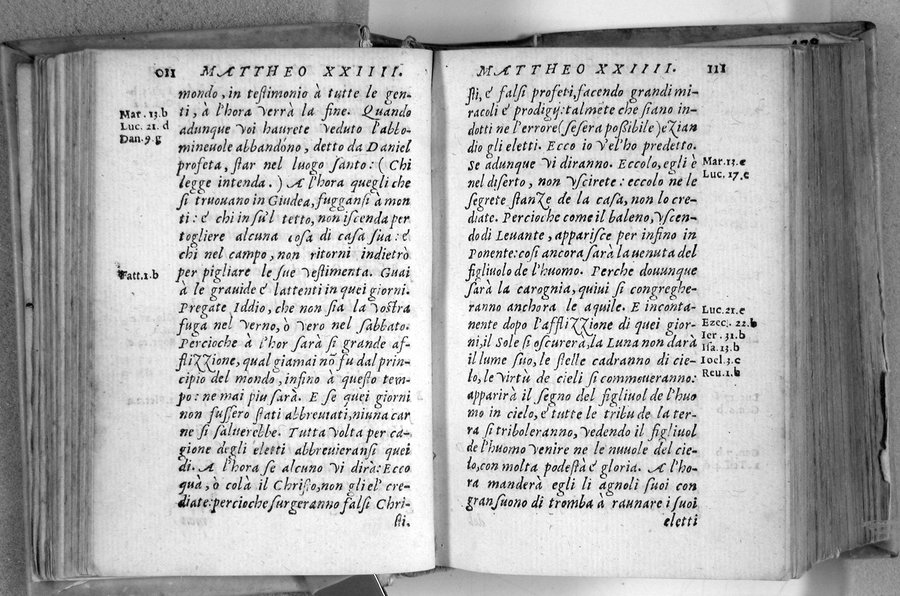 011 MATTHEO XXIIII.
mondo, in testimonio à tutte le gen-
ti, à l'hora verrà la fine. Quando
adunque voi haurete veduto l'abbo-
mineuole abbandono, detto da Daniel
profeta, star nel luogo santo: (Chi
legge intenda.) A l'hora quegli che
si truouano in Giudea, fuggansi a mon
ti: é chi in su'l tetto, non iscenda per
togliere alcuna cosa di casa sua: é
chi nel campo, non ritorni indietrò
per pigliare le sue vestimenta. Guai
à le grauide é lattenti in quei giorni.
Pregate Iddio, che non sia la vostra
fuga nel verno, ò vero nel sabbato.
Percioche à l'hor sarà si grande af-
flizzione, qual giamai nõ fu dal prin-
cipio del mondo, infino à questo tem-
po: ne mai piu sarà. E se quei giorni
non fussero stati abbreuiati, niuna car
ne si saluerebbe. Tutta volta per ca-
gione degli eletti abbreuieransi quei
dì. A l'hora se alcuno vi dirà: Ecco
quà, ò colà il Christo, non gliel' cre-
diate: percioche surgeranno falsi Chri-
sti.
Mar. 13.b
Luc. 21.d
Dan. 9.g
Fatt. 1.b
MATTHEO XXIIII. 111
sti, é falsi profeti, facendo grandi mi-
racoli é prodigy: talmẽte che siano in-
dotti ne l'errore (se sera possibile) ezian
dio gli eletti. Ecco io vel'ho predetto.
Se adunque vi diranno. Eccolo, egli è
nel diserto, non vscirete: eccolo ne le
segrete stanze de la casa, non lo cre-
diate. Percioche come il baleno, vscen
do di Leuante, apparisce per infino in
Ponente: cosi ancora sarà la venuta del
figliuolo de l'huomo. Perche dounque
sarà la carognia, quiui si congreghe-
ranno anchora le aquile. E inconta-
nente dopo l'afflizzione di quei gior-
ni, il Sole si oscurerà, la Luna non darà
il lume suo, le stelle cadranno di cie-
lo, le virtù de cieli si commoueranno:
apparirà il segno del figliuol de l'huo
mo in cielo, é tutte le tribu de la ter-
ra si triboleranno, vedendo il figliuol
de l'huomo venire ne le nuuole del cie-
lo, con molta podestà é gloria. A l'ho-
ra manderà egli li agnoli suoi con
gran suono di tromba à raunare i suoi
eletti
Mar. 13.e
Luc. 17.e
Luc. 21.e
Ezec. 22.b
Ier. 31.b
Isa. 13.b
Ioel. 3.c
Reu. 1.b